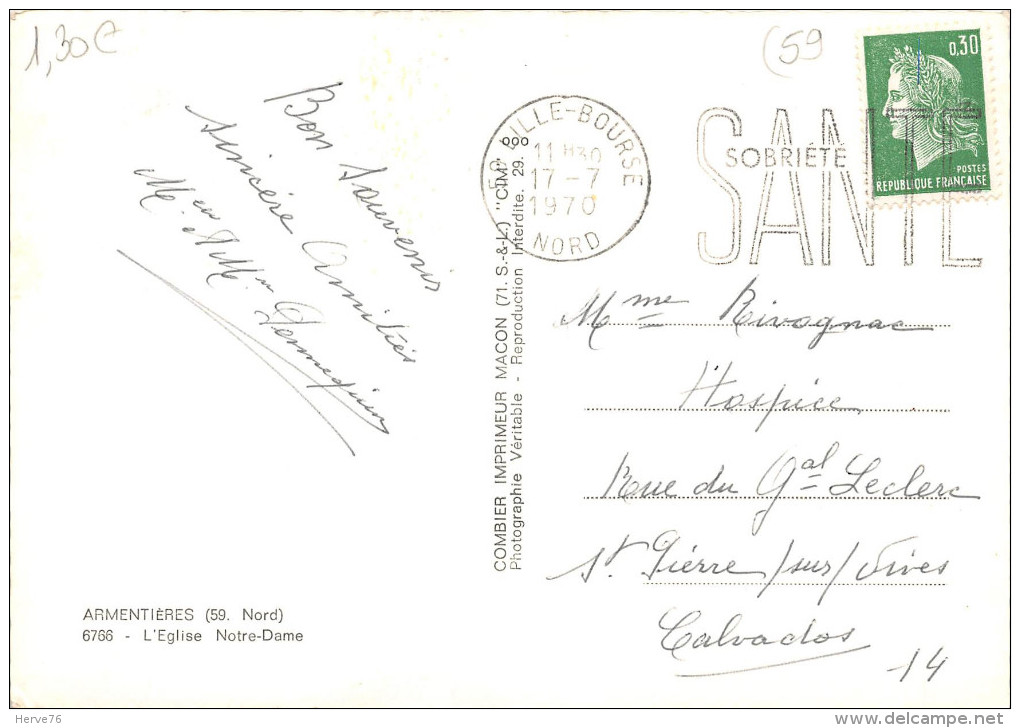 1,30€
(59
Bon Souvenir
sincère Amitiés
Mr et Mme
0,30
POSTES
REPUBLIQUE FRANÇAISE
LILLE-BOURSE
11 H30
17 - 7
1970
NORD
SANTÉ
SOBRIÉTÉ
COMBIER IMPRIMEUR MACON (71. S.-&-L.) "CIM"
Photographie Véritable - Reproduction Interdite. 29.
Mme Rivognac
Hospice
Rue du Gal Leclerc
St Pierre /sur/ Dives
Calvados
14
ARMENTIÈRES (59. Nord)
6766 - L'Eglise Notre-Dame
Herve76
delcampe.net